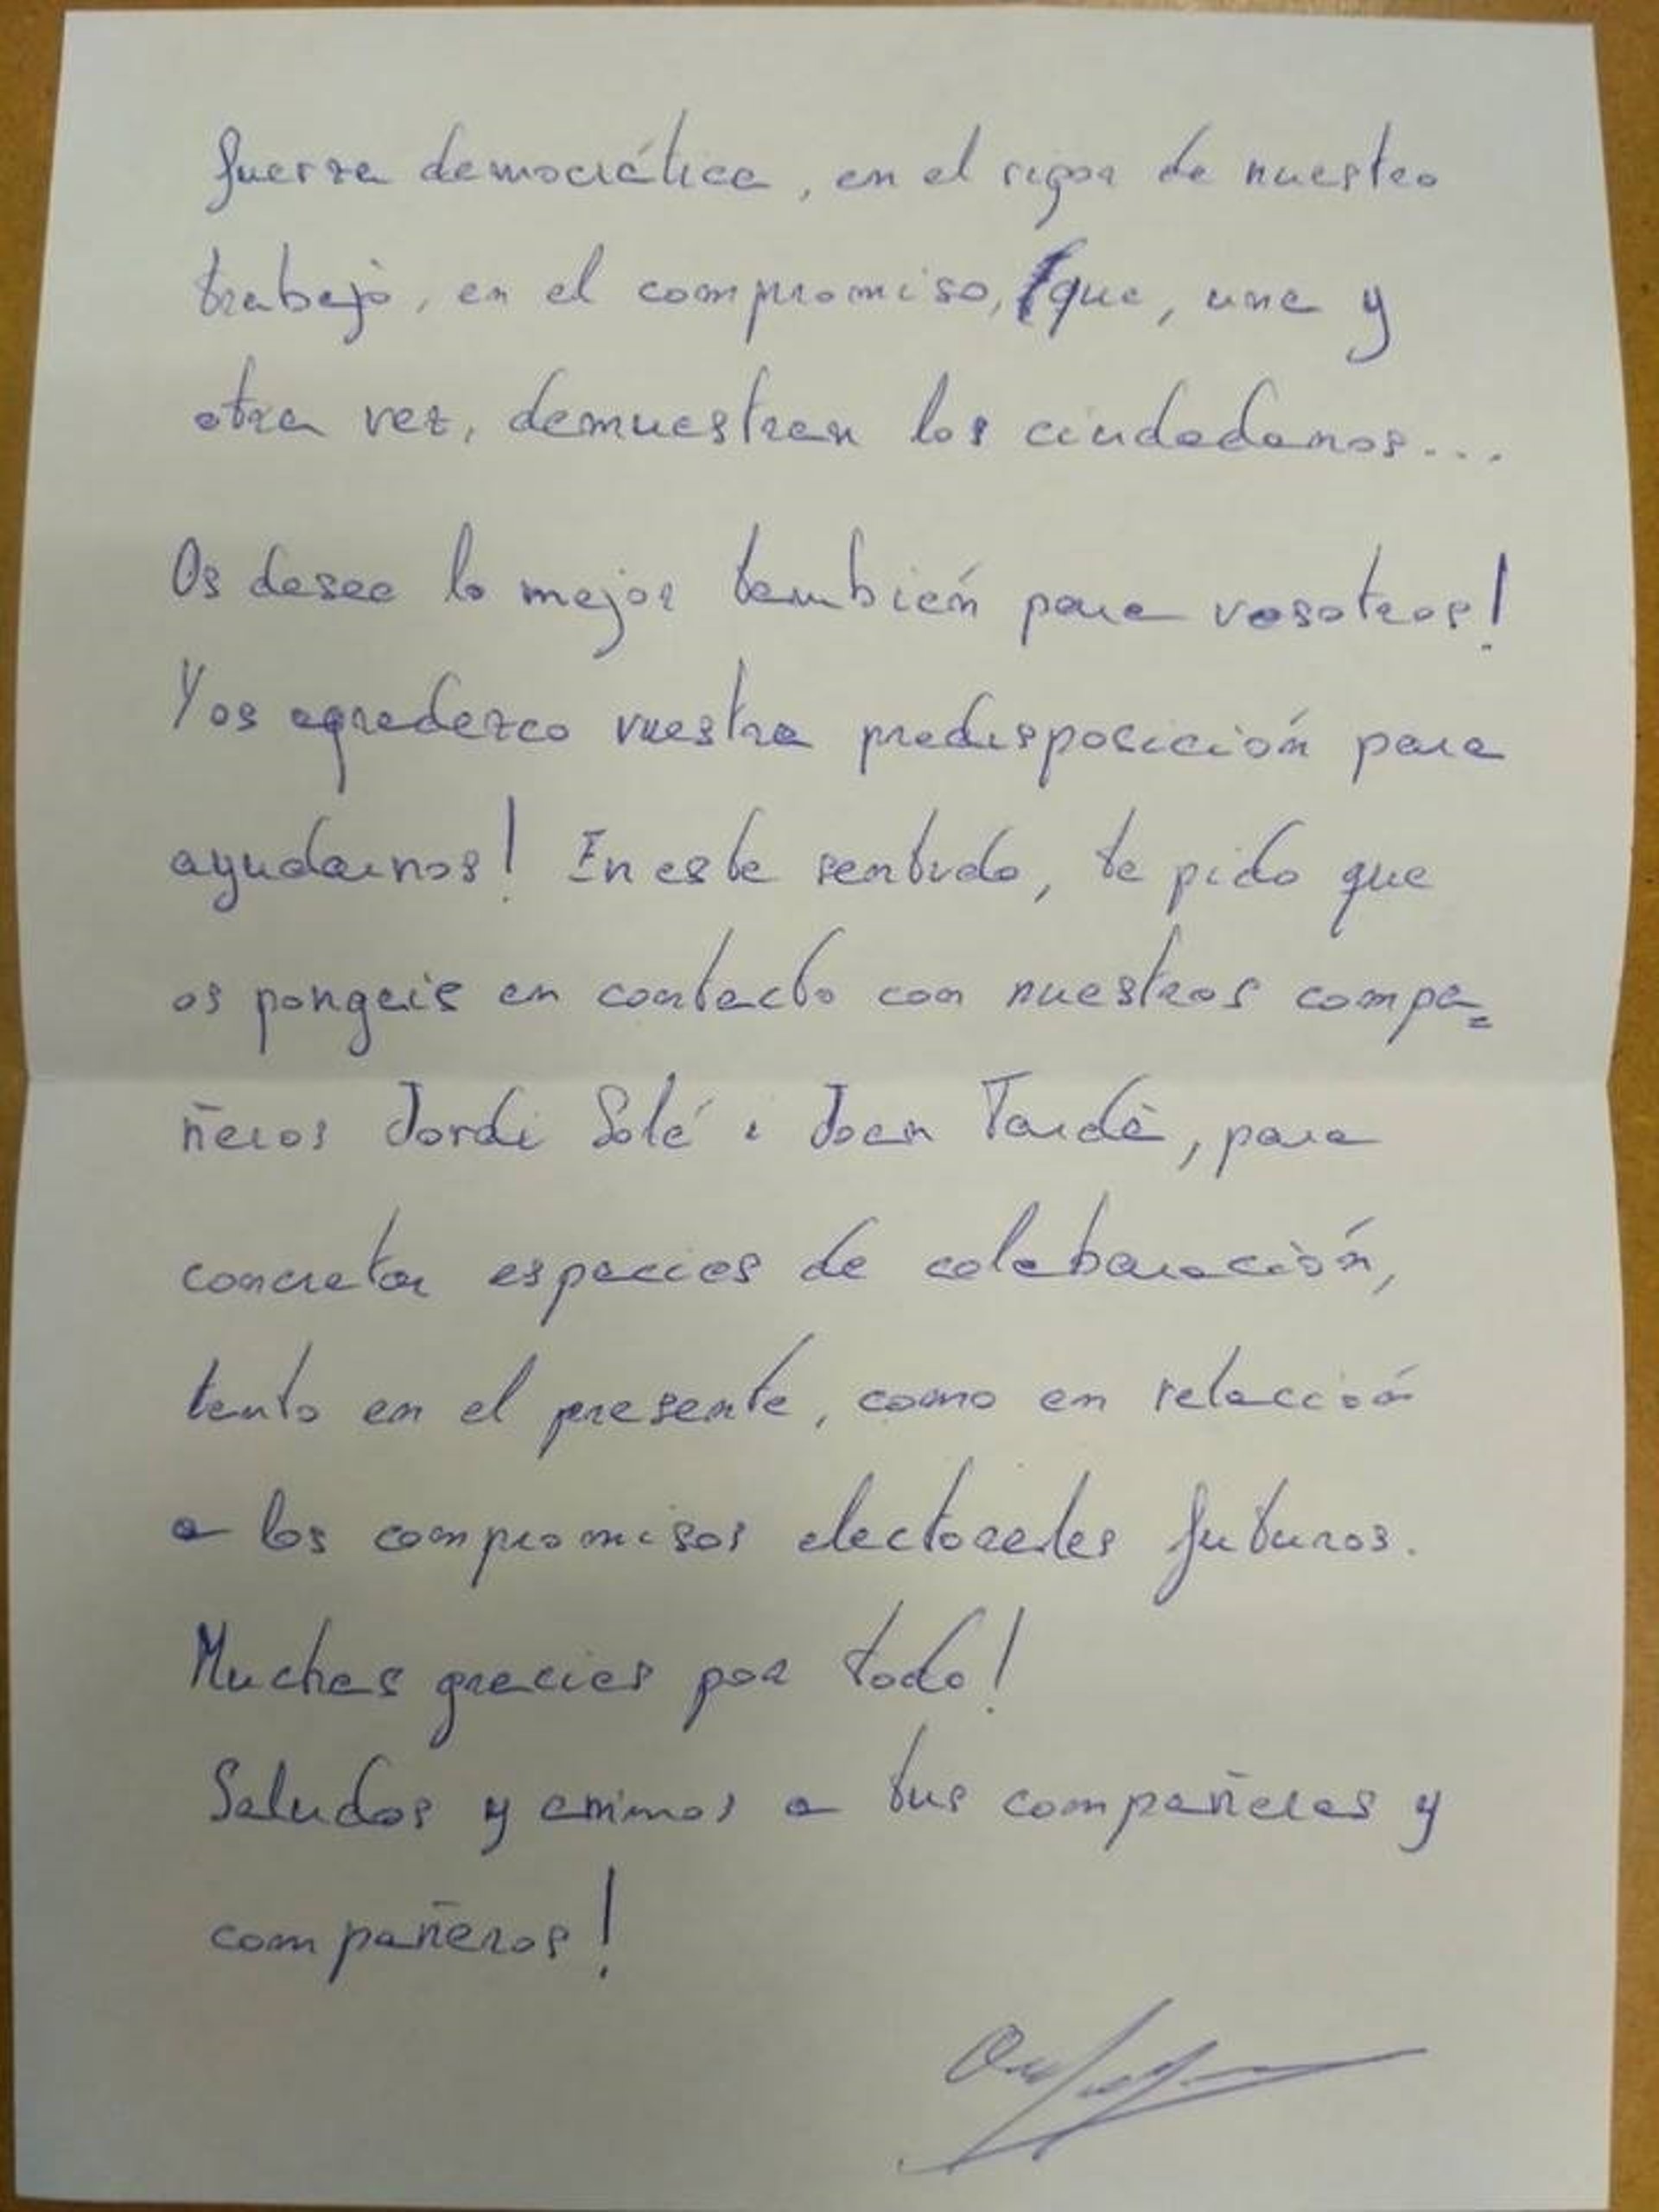 fuerza democrática, en el rigor de nuestro
trabajo, en el compromiso, que, una y
otra vez, demuestran los ciudadanos...
Os deseo lo mejor también para vosotros!
Y os agradezco vuestra predisposición para
ayudarnos! En este sentido, te pido que
os pongais en contacto con nuestros compa=
ñeros Jordi Solé i Joan Tardà, para
concretar espacios de colaboración,
tanto en el presente, como en relación
a los compromisos electorales futuros.
Muchas gracias por todo!
Saludos y animos a tus compañeras y
compañeros!